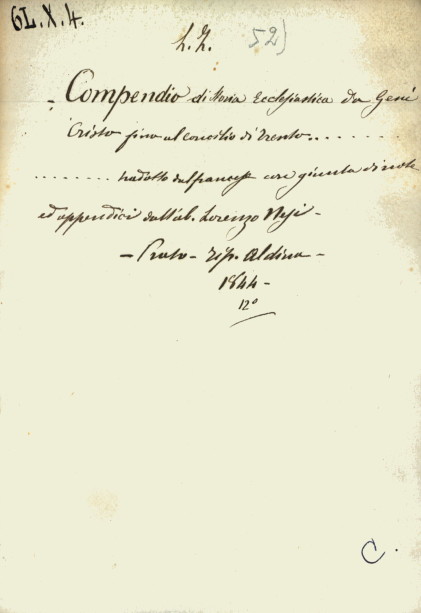 6L.X.4.
L.Z. 52)
- Compendio di Storia Ecclesiastica da Gesù
Cristo fino al concilio di Trento.........
........ tradotto dal francese con giunta di note
ed appendici dall'ab. Lorenzo -
- Prato - Tip. Aldina -
1844 -
12°
C.